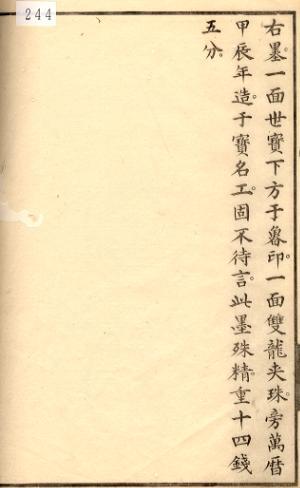 244
右墨。一面世寶下方于魯印。一面雙龍夾珠。旁萬曆
甲辰年造。于寶名工。固不待言。此墨殊精。重十四錢
五分。